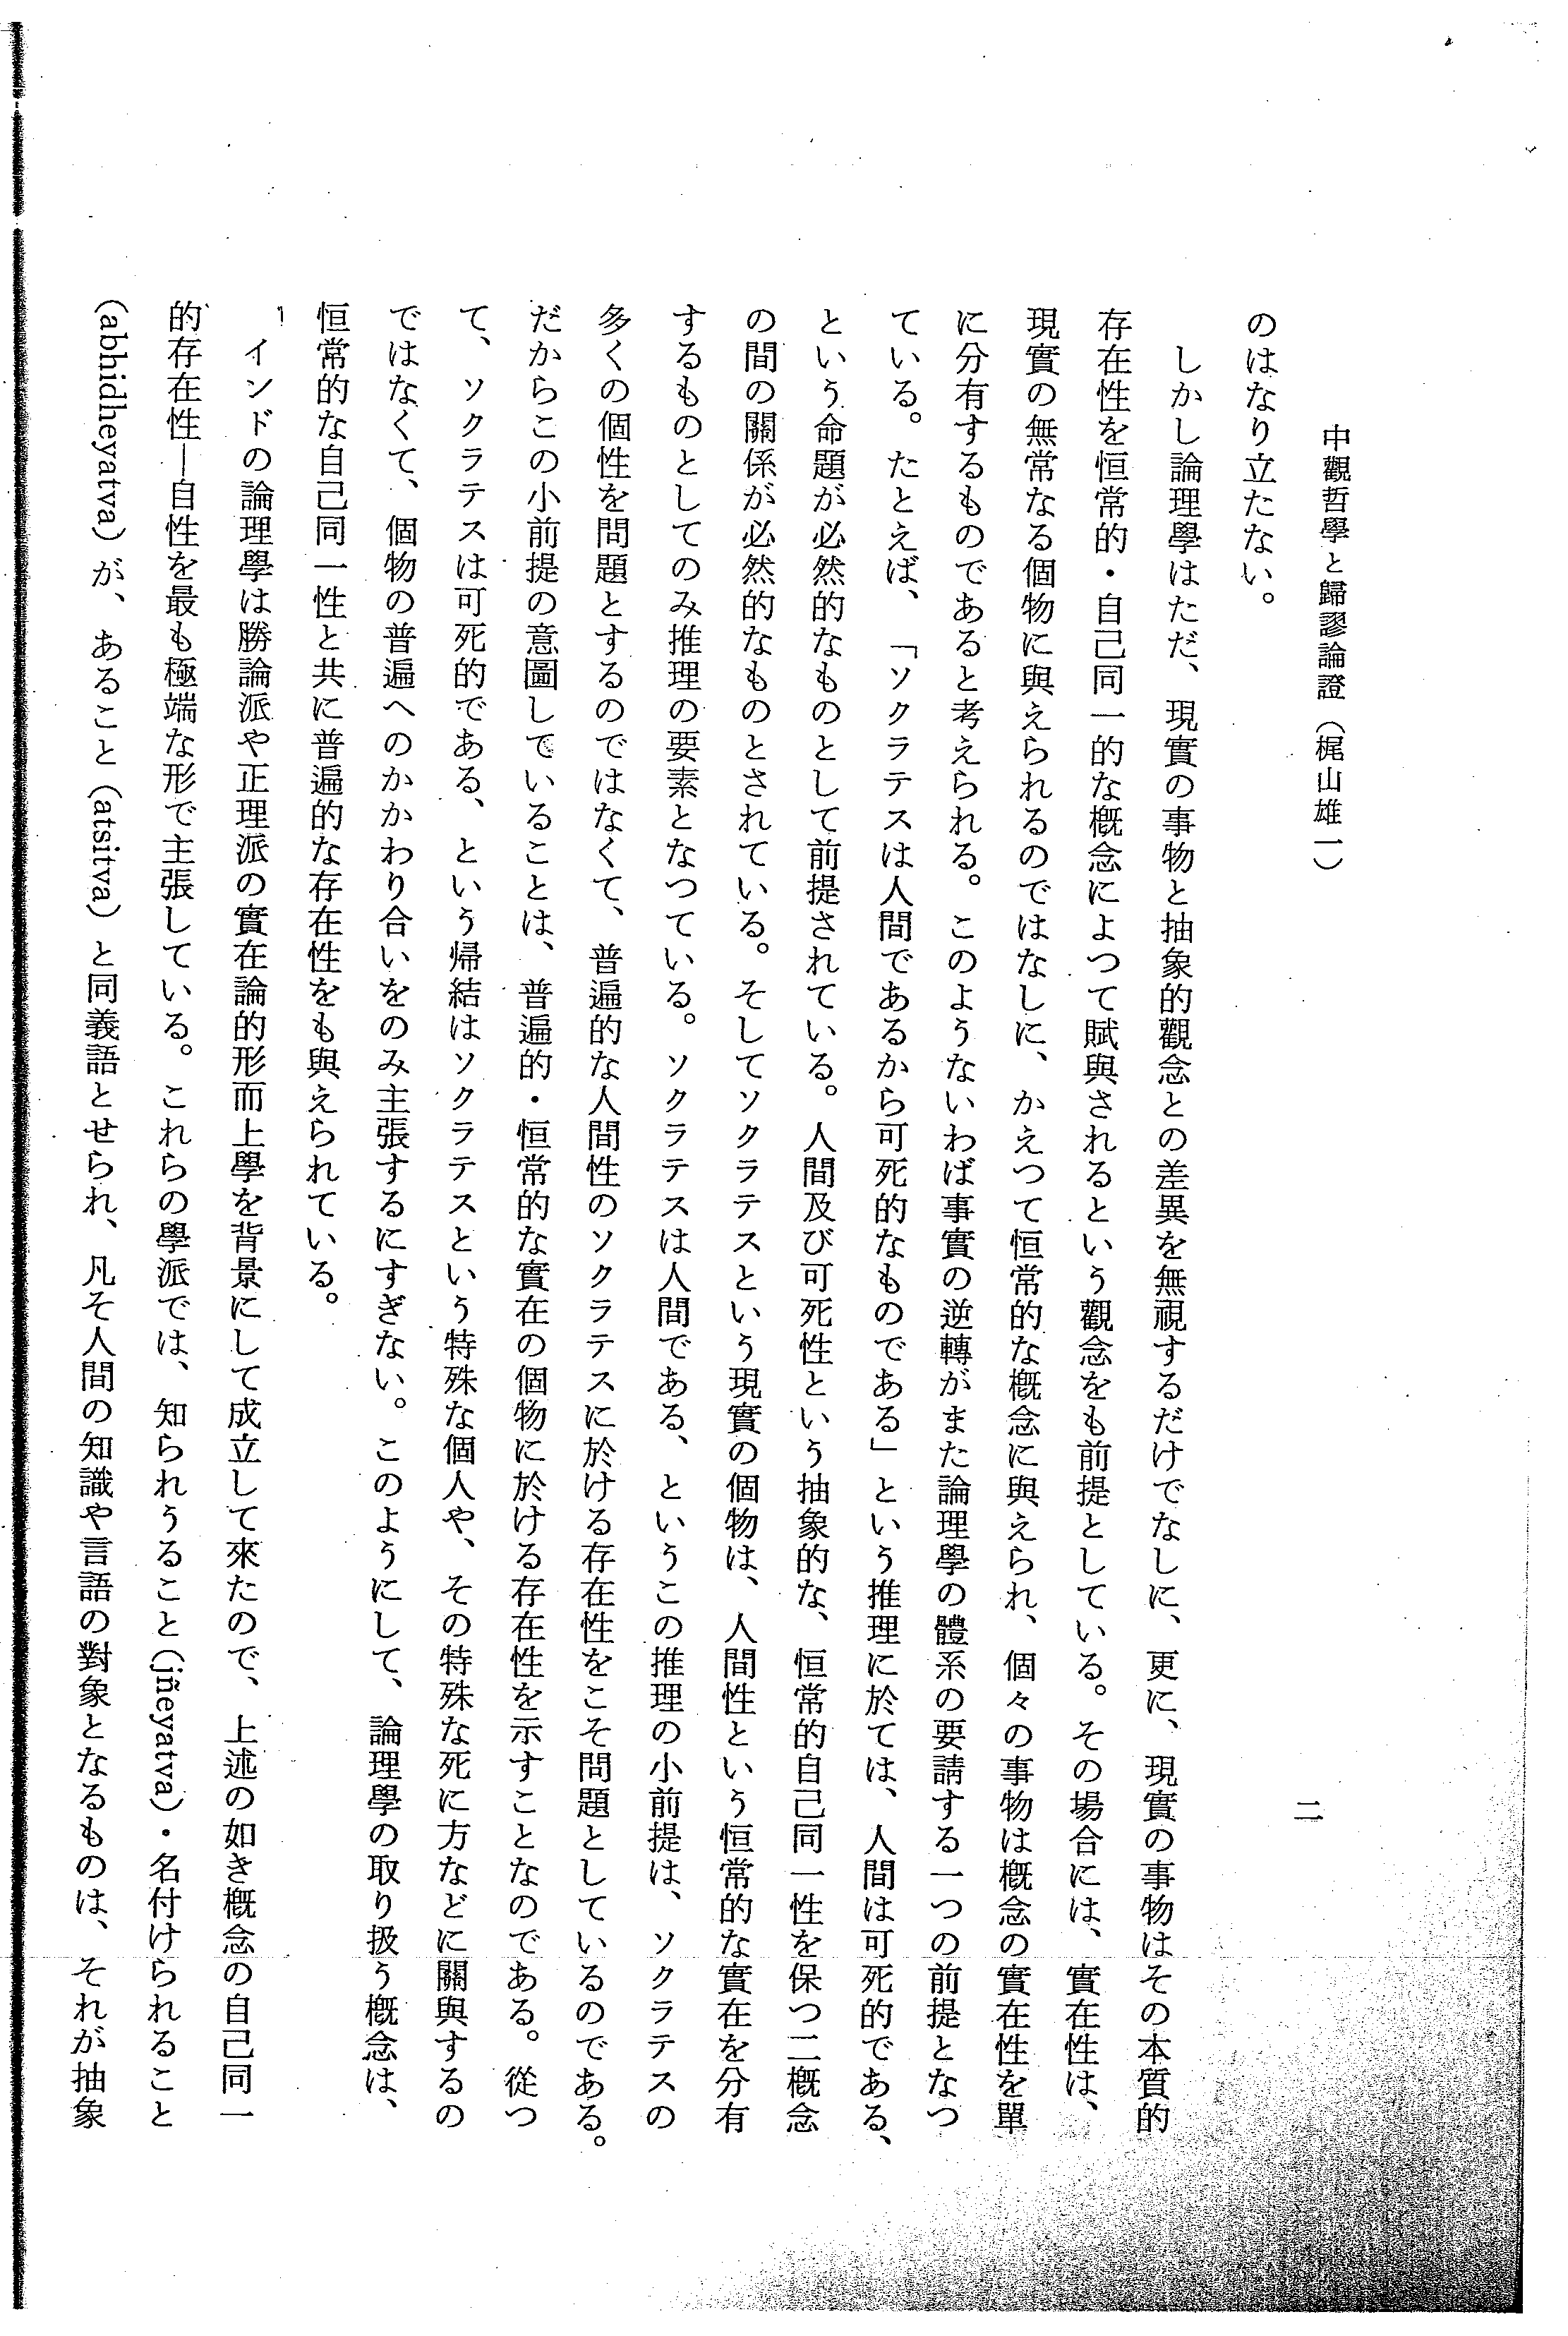 中觀哲學と歸謬論證（梶山雄一）
二
のはなり立たない。
しかし論理學はただ、現實の事物と抽象的觀念との差異を無視するだけでなしに、更に、現實の事物はその本質的
存在性を恒常的・自己同一的な槪念によつて賦與されるという觀念をも前提としている。その場合には、實在性は、
現實の無常なる個物に與えられるのではなしに、かえつて恒常的な槪念に與えられ、個々の事物は槪念の實在性を單
に分有するものであると考えられる。このようないわば事實の逆轉がまた論理學の體系の要請する一つの前提となつ
ている。たとえば、「ソクラテスは人間であるから可死的なものである」という推理に於ては、人間は可死的である、
という命題が必然的なものとして前提されている。人間及び可死性という抽象的な、恒常的自己同一性を保つ二槪念
の間の關係が必然的なものとされている。そしてソクラテスという現實の個物は、人間性という恒常的な實在を分有
するものとしてのみ推理の要素となつている。ソクラテスは人間である、というこの推理の小前提は、ソクラテスの
多くの個性を問題とするのではなくて、普遍的な人間性のソクラテスに於ける存在性をこそ問題としているのである。
だからこの小前提の意圖していることは、普遍的・恒常的な實在の個物に於ける存在性を示すことなのである。從つ
て、ソクラテスは可死的である、という帰結はソクラテスという特殊な個人や、その特殊な死に方などに關與するの
ではなくて、個物の普遍へのかかわり合いをのみ主張するにすぎない。このようにして、論理學の取り扱う槪念は、
恒常的な自己同一性と共に普遍的な存在性をも與えられている。
インドの論理學は勝論派や正理派の實在論的形而上學を背景にして成立して來たので、上述の如き槪念の自己同一
的存在性―自性を最も極端な形で主張している。これらの學派では、知られうること（jñeyatva）・名付けられること
（abhidheyatva）が、あること（atsitva）と同義語とせられ、凡そ人間の知識や言語の對象となるものは、それが抽象